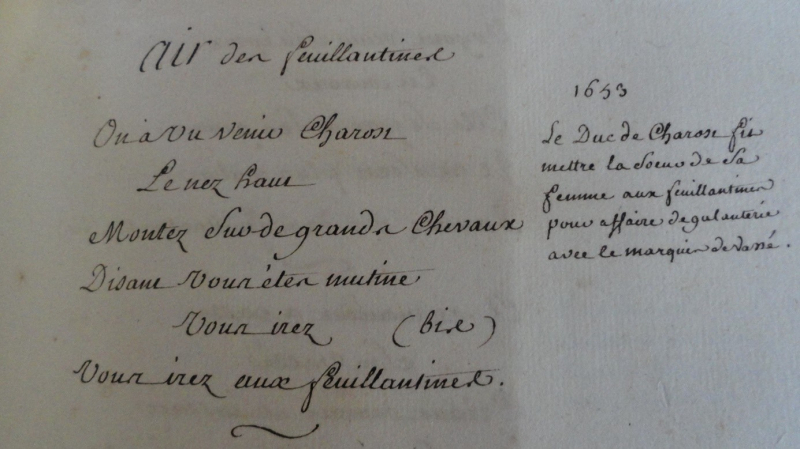 Air des feuillantines
On a vu venir Charost
Le nez haut
Montez Sur de grands Chevaux
Disant vous étes mutine
Vous irez (bis)
Vous irez aux feuillantines.
1653
Le Duc de Charost fit
mettre la Soeur de Sa
femme aux feuillantines
pour affaire de galanterie
avec le marquis de Vassé.